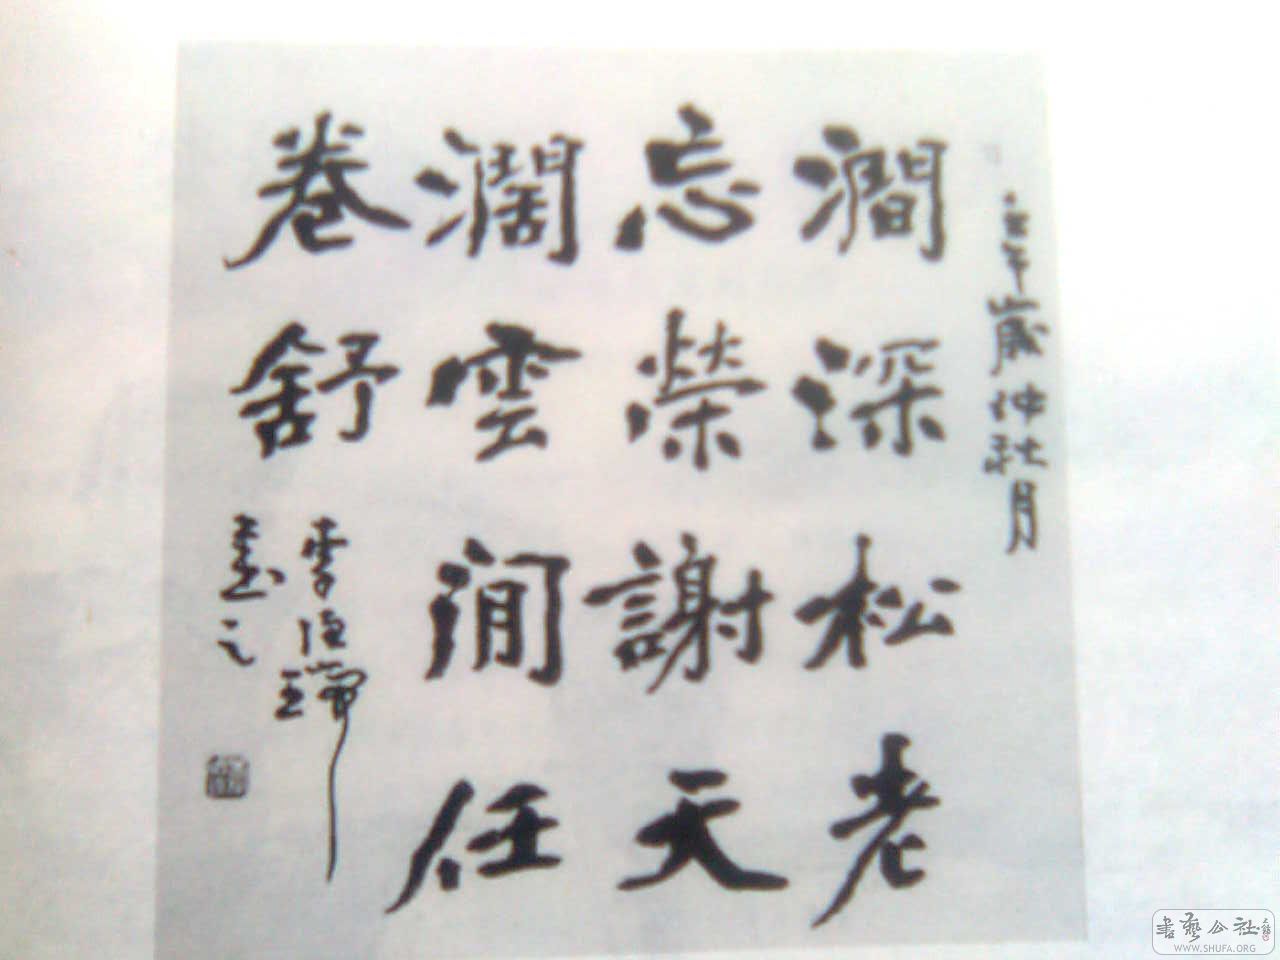 壬午歲仲秋月
澗深松老
忘榮謝天
濶雲閒任
卷舒
李德瑞
書之
書藝公社
WWW.SHUFA.ORG